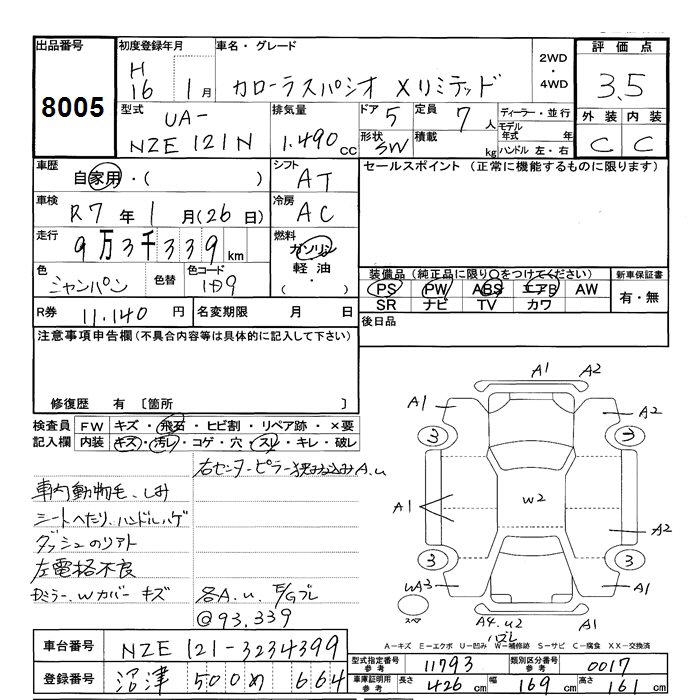 出品番号 初度登録年月 車名・グレード 2WD・4WD 評価点
8005 H16 1月 カローラスパシオ Xリミテッド 3.5
型式 UA-NZE121N 排気量 1.490cc ドア 5 定員 7人 ディーラー・並行
形状 3W 積載 kg モデル年式 年 ハンドル 左・右
外装 内装
C C
車歴 自家用・( ) シフト AT セールスポイント(正常に機能するものに限ります)
車検 R7年1月(26日) 冷房 AC
走行 9万3千339km 燃料 ガソリン 軽油 ・( )
色 シャンパン 色替 色コード 装備品(純正品に限り○をつけてください) 新車保証書
PS PW ABS エアB AW 有・無
SR ナビ TV カワ
R券 11.140円 名変期限 月 日 後日品
注意事項申告欄(不具合内容等は具体的に記入して下さい)
修復歴 有 〔箇所 〕
検査員 FW キズ・飛石・ヒビ割・リペア跡・×要
記入欄 内装 キズ・汚レ・コゲ・穴・スレ・キレ・破レ
右センターピラー挟み込みA.u
車内動物毛.しみ
シートへたり.ハンドルハゲ
ダッシュのリアト
左電格不良
Wカバー キズ
各A.u. E/Gブレ
@93.339
A1 A2
A1 A2
3 3
A1 W2 A2
3 3
WA3 A1
スペア A4.u2 A1
ハズレ
A-キズ E-エクボ U-凹み W-補修跡 S-サビ C-腐食 XX-交換済
車台番号 NZE121-3234399
型式指定番号 参考 11793 類別区分番号 参考 0017
登録番号 沼津 500 め 664
車庫証明用 参考 長さ 426cm 幅 169cm 高さ 161cm